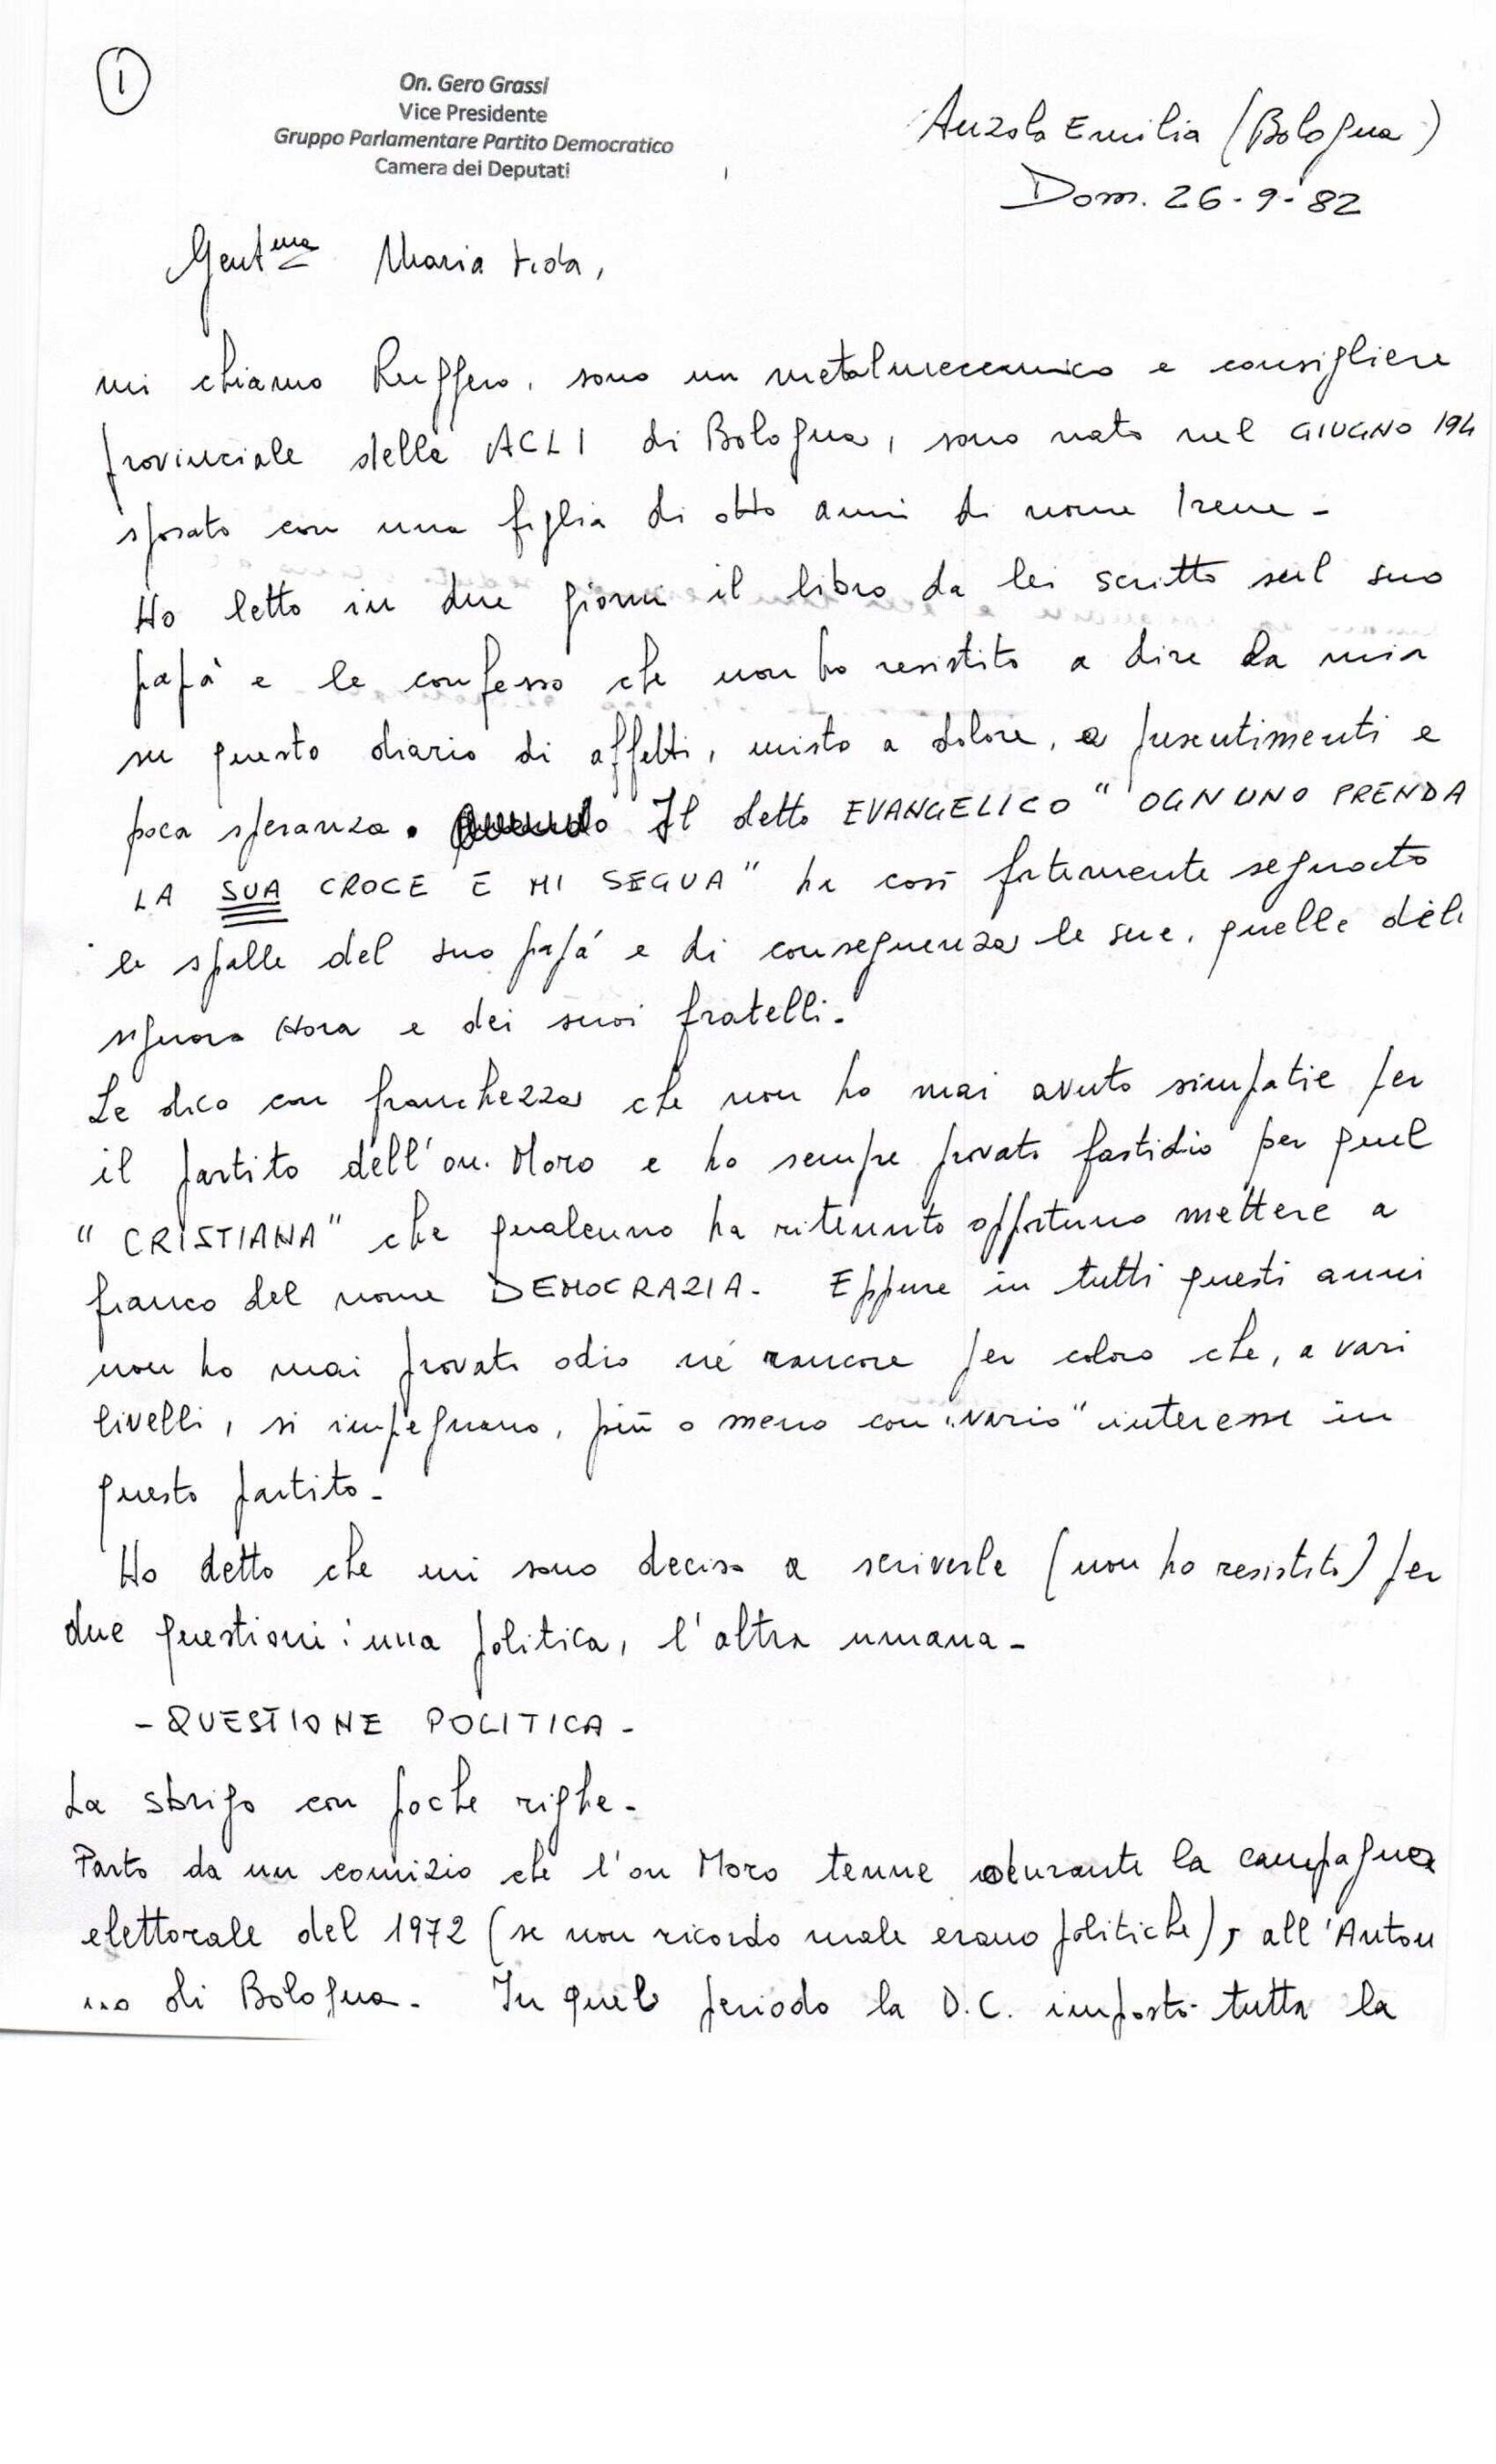 1
On. Gero Grassi
Vice Presidente
Gruppo Parlamentare Partito Democratico
Camera dei Deputati
Anzola Emilia (Bologna)
Dom. 26-9-82
Gent.ma Maria Fida,
mi chiamo Ruggero, sono un metalmeccanico e consigliere
provinciale delle ACLI di Bologna, sono nato nel GIUGNO 194
sposato con una figlia di otto anni di nome Irene -
Ho letto in due giorni il libro da lei scritto sul suo
papà e le confesso che non ho resistito a dire la mia
su questo diario di affetti, misto a dolore, a presentimenti e
poca speranza. Il detto EVANGELICO " OGNUNO PRENDA
LA SUA CROCE E MI SEGUA" ha così fortemente segnato
le spalle del suo papà e di conseguenza le sue, quelle dell
signora Nora e dei suoi fratelli.
Le dico con franchezza che non ho mai avuto simpatie per
il partito dell'on. Moro e ho sempre provato fastidio per quel
" CRISTIANA" che qualcuno ha ritenuto opportuno mettere a
fianco del nome DEMOCRAZIA - Eppure in tutti questi anni
non ho mai provato odio né rancore per coloro che, a vari
livelli, si impegnano, più o meno con "vario" interesse in
questo partito -
Ho detto che mi sono deciso a scriverle (non ho resistito) per
due questioni: una politica, l'altra umana -
- QUESTIONE POLITICA -
La sbrigo con poche righe -
Parto da un comizio che l'on Moro tenne durante la campagna
elettorale del 1972 (se non ricordo male erano politiche), all'Anton
no di Bologna - In quel periodo la D.C. impostò tutta la